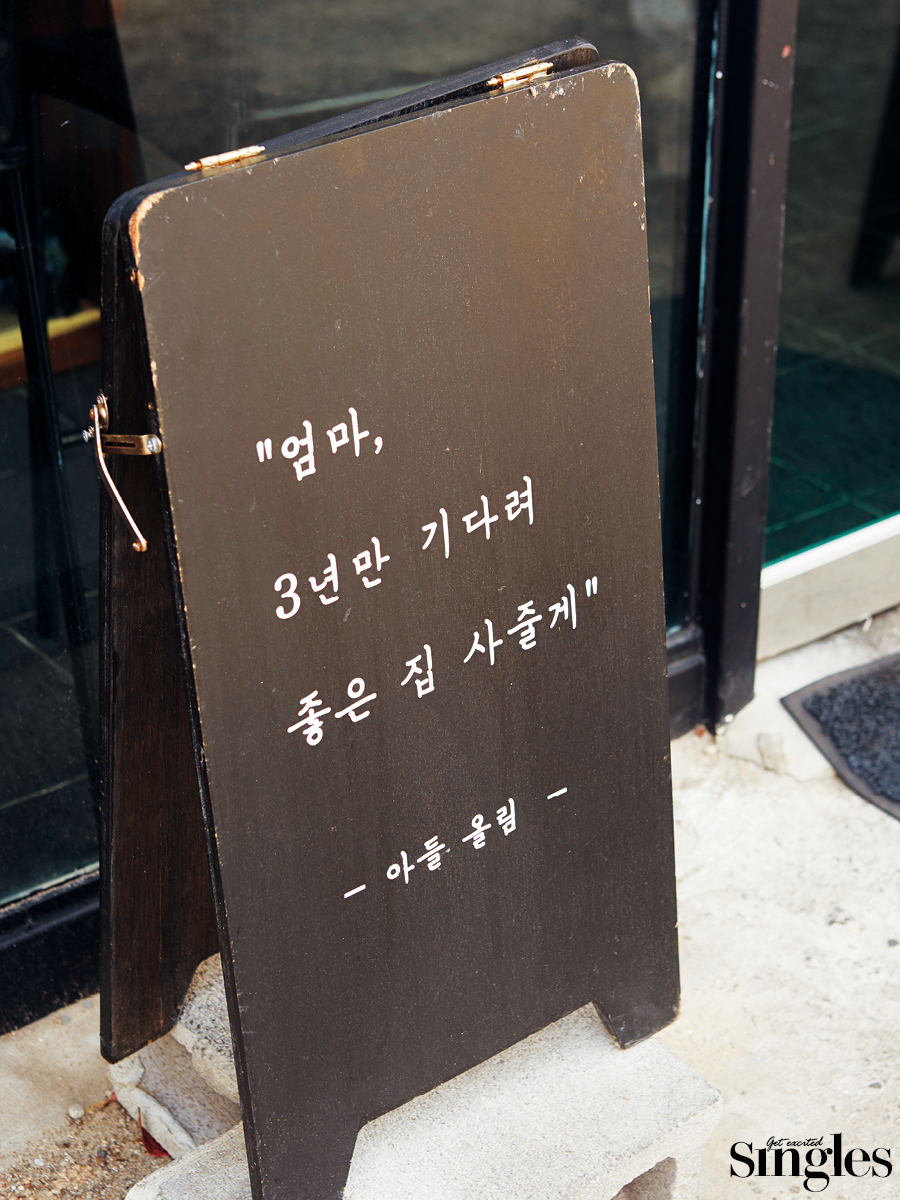 "엄마,
3년만 기다려
좋은 집 사줄게"
- 아들 올림 -
Get excited
Singles